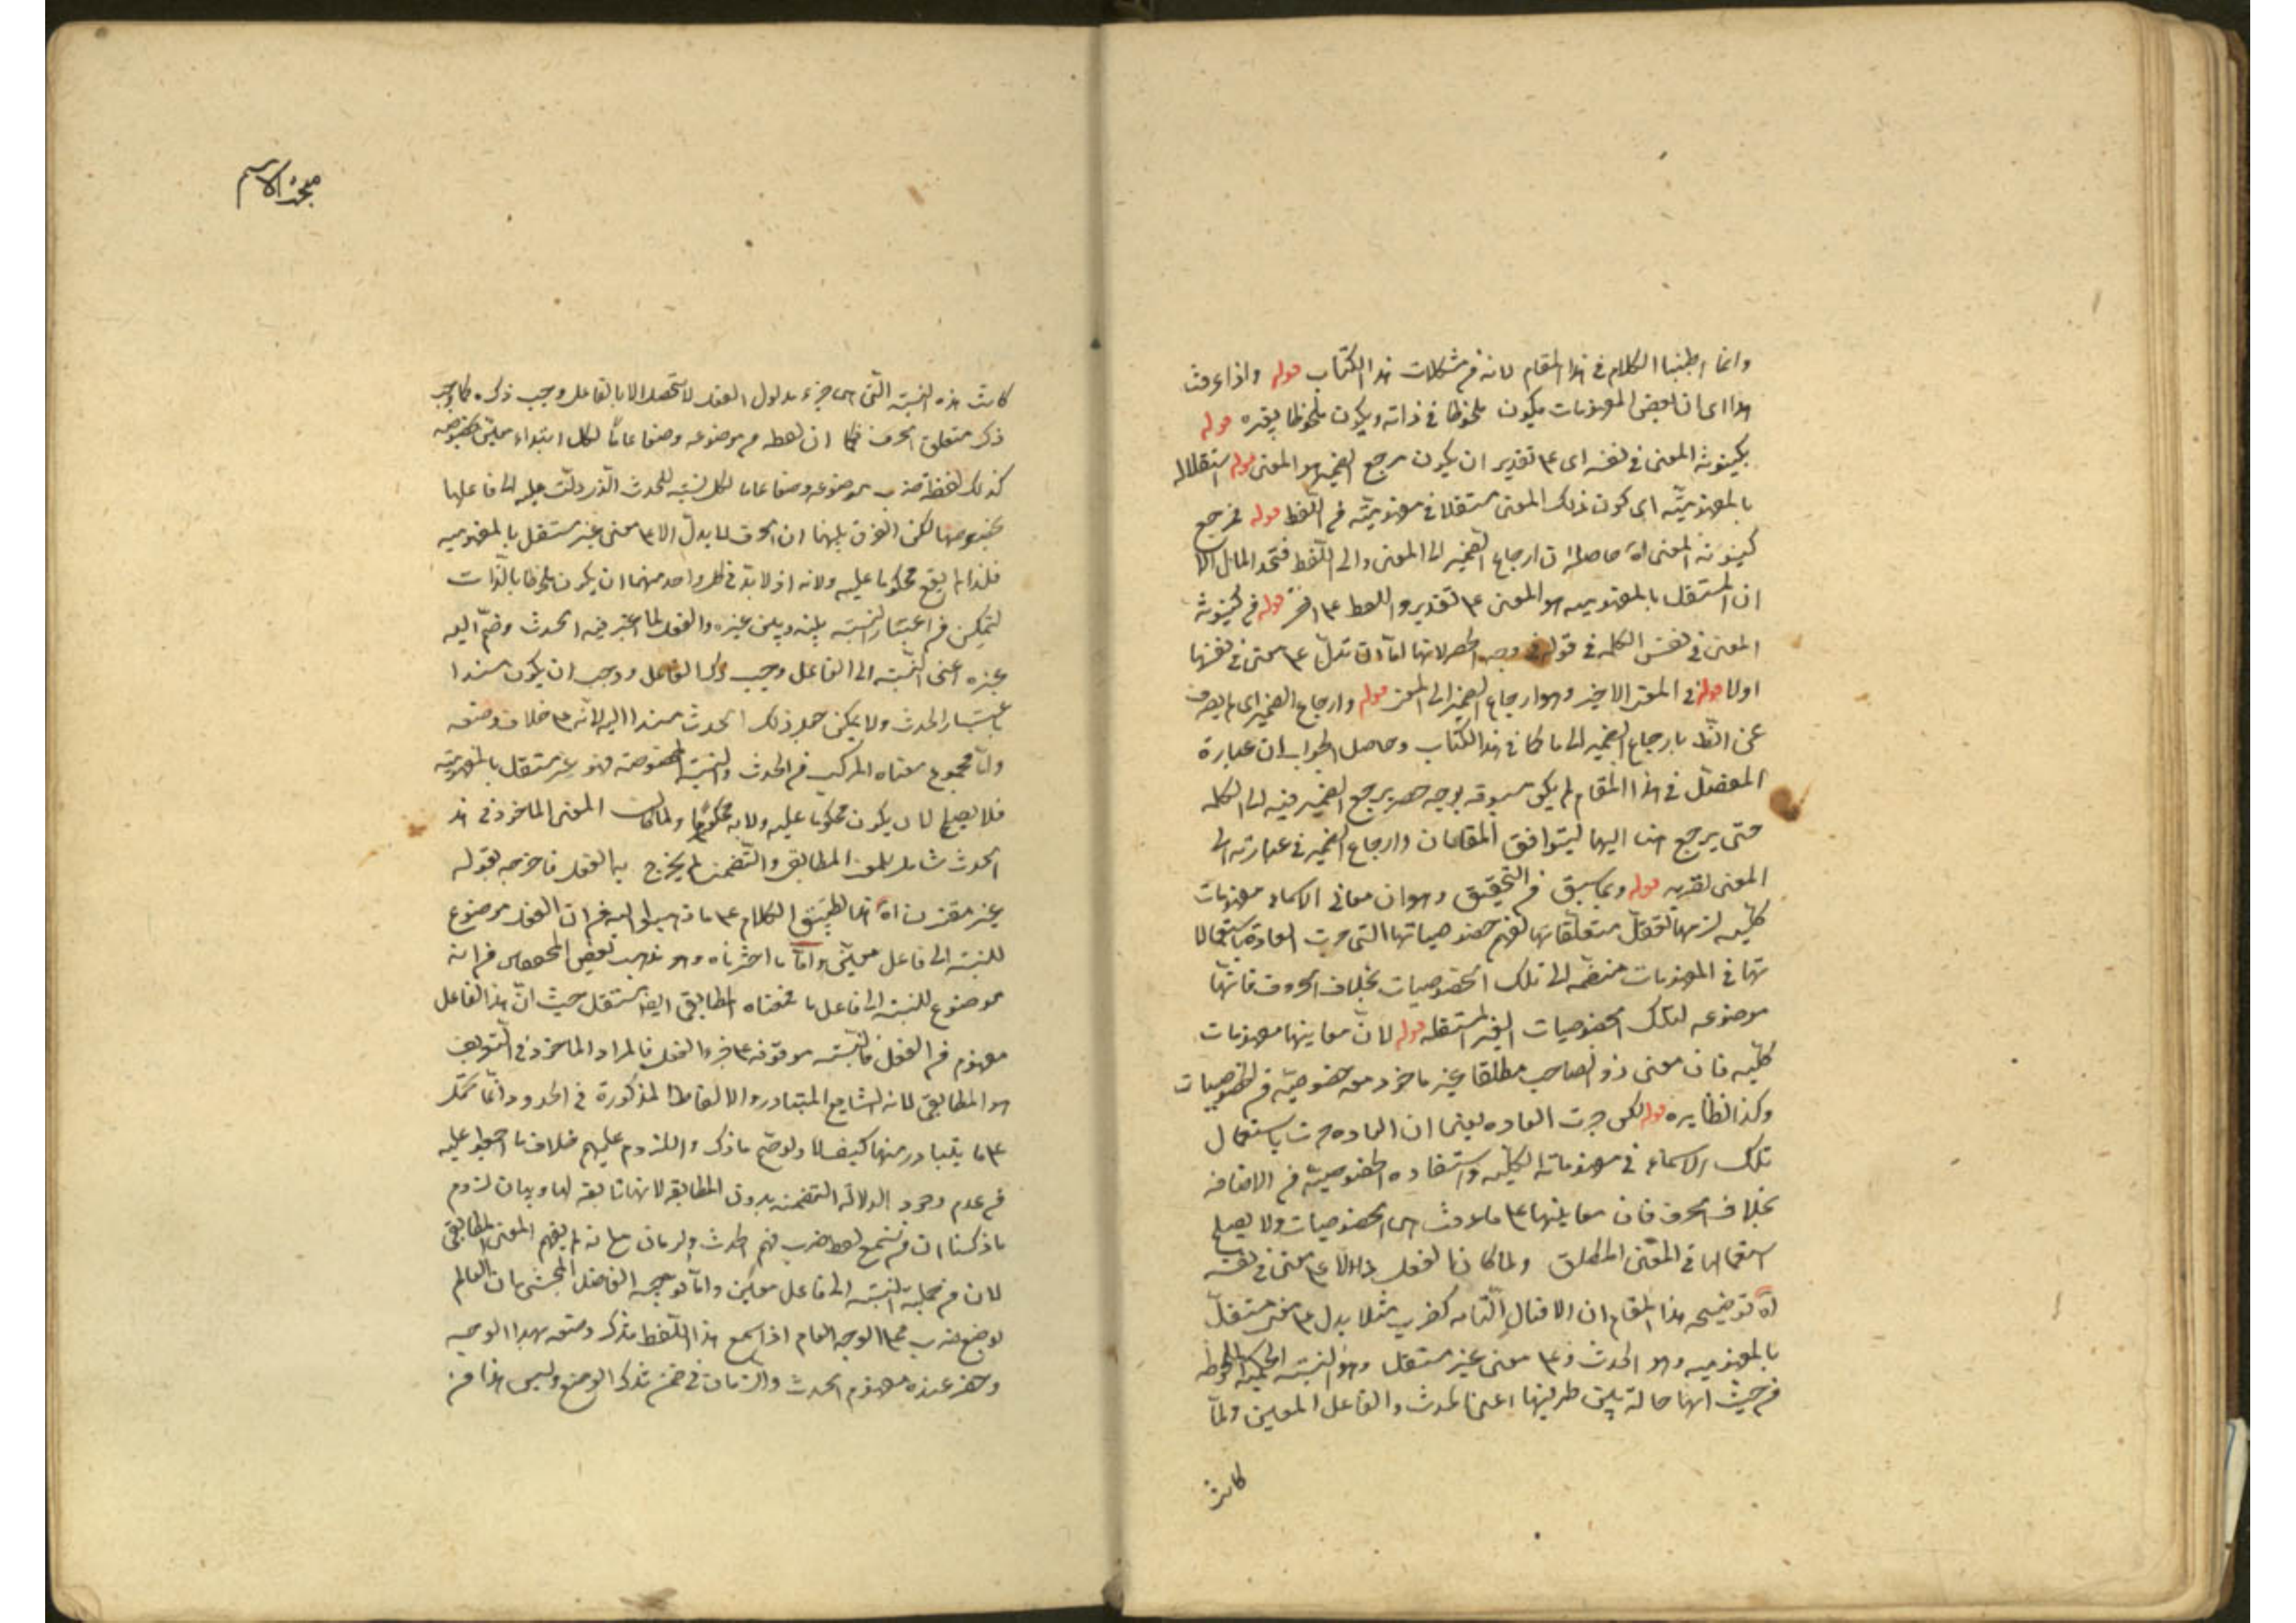 وانما اطنبنا الكلام في هذا المقام لانه من مشكلات هذا الكتاب قوله واذا عرفت
هذا اى ان بعض المفهومات يكون ملحوظا في ذاته ويكون ملحوظا بغيره قوله
بكينونة المعنى في نفسه اى على تقدير ان يكون مرجع الضمير هو المعنى قوله استقلاله
بالمفهومية اى كون ذلك المعنى مستقلا في مفهوميته من اللفظ قوله فمرجع
كينونة المعنى اه حاصله ان ارجاع الضمير الى المعنى والى اللفظ متحد المال الا
ان المستقل بالمفهوميه هو المعنى على تقدير واللفظ على اخر قوله من كينونة
المعنى في نفس الكلمه في قوله في وجه الحصر لانها اما ان تدل على معنى في نفسها
اولا قوله في المعنى الاخير وهو ارجاع الضمير الى المعنى قوله وارجاع الضمير اى لم يصرف
عن الظ بارجاع الضمير الى ما كما في هذا الكتاب وحاصل الجواب ان عبارة
المفصل في هذا المقام لم يكن مسبوقه بوجه حصر يرجع الضمير فيه الى الكلمه
حتى يرجع هنا اليها ليتوافق المقامان وارجاع الضمير في عبارته الى
المعنى لقربه قوله وبما سبق من التحقيق وهو ان معانى الاسماء مفهومات
كليه لزمها تعقل متعلقاتها لفهم خصوصياتها التى جرت العادة باستعمالا
تها في المفهومات منضمه الى تلك الخصوصيات بخلاف الحروف فانها
موضوعه لتلك الخصوصيات الغير المستقله قوله لان معاينها مفهومات
كليه فان معنى ذو الصاحب مطلقا غير ماخوذ معه خصوصيه من الخصوصيات
وكذا نظايره قوله لكن جرت العاده يعنى ان العاده جرت باستعمال
تلك الاسماء في مفهوماته الكليه واستفاده الخصوصية من الاضافه
بخلاف الحرف فان معاينها على ما عرفت هى الخصوصيات ولا يصلح
استعمالها في المعنى المطلق ولما كان الفعل دالا على معنى في نفسه
اه توضيحه هذا المقام ان الافعال التامه كضرب مثلا يدل على معنى مستقل
بالمفهوميه وهو الحدث وعلى معنى غير مستقل وهو النسبته الحكميه الملحوظه
من حيث انها حالة بين طرفيها اعنى الحدث والفاعل المعين ولما
كانت
محذ الاسم
كانت هذه النسبة التى هى جزء مدلول الفعل لا تحصل الا بالفاعل وجب ذكره كما وجب
ذكر متعلق الحرف فكما ان لفظه من موضوعه وضعا عاما لكل ابتداء معين بخصوصه
كذلك لفظة ضرب موضوعه وضعا عاما لكل نسبة للحدث الذى دلت عليه الى فاعلها
بخصوصها لكن الفرق بينهما ان الحرف لما يدل الا على معنى غير مستقل بالمفهوميه
فلذا لم يقع محكوما عليه ولا به اذ لا بد في كل واحد منهما ان يكون ملحوظا بالذات
ليتمكن من اعتبار النسبة بينه وبين غيره والفعل لما اعتبر فيه الحدث وضم اليه
غيره اعنى النسبة الى الفاعل وجب ذكر الفاعل ووجب ان يكون مسندا
باعتبار الحدث ولا يمكن جعل ذلك الحدث مسندا اليه لانه على خلاف وضعه
واما مجموع معناه المركب من الحدث والنسبة المخصوصة فهو غير مستقل بالمفهوميته
فلا يصلح لان يكون محكوما عليه ولا به محكوما ولما كانت المعنى الماخوذ في هذ
الحدث شاملا للمعنى المطابق والتضمنى لم يخرج به الفعل فاخرجه بقوله
غير مقترن اه هذا تطبيق الكلام على ما ذهبوا اليه من ان الفعل موضوع
للنسبة الى فاعل معين واما ما اخترناه وهو مذهب بعض المحققين من انه
موضوع للنسبة الى فاعل ما فمعناه المطابقى ايضا مستقل حيث ان هذا الفاعل
مفهوم من الفعل فالنسبته موقوفه على جزء الفعل فالمراد الماخوذ في التعريف
هو المطابقى لانه الشايع المتبادر والالفاظ المذكورة في الحدود انما تحمل
على ما يتبادر منها كيف لا ولو صح ما ذكر واللزوم عليهم خلاف ما اجمعوا عليه
من عدم وجود الدلالة التضمنيه بدون المطابقه لانها تابعه لها وبيان لزوم
ما ذكرنا ان من سمع لفظ ضرب فهم الحدث والزمان مع انه لم يفهم المعنى المطابقى
لان من جملته النسبة الى فاعل معين واما توجيه الفاضل المحشى بان العالم
لوضع ضرب بهذا الوجه العام اذا سمع هذا اللفظ تذكر وضعه بهذا الوجه
وحضر عنده مفهوم الحدث والزمان في ضمن تذكر الوضع وليس هذا من